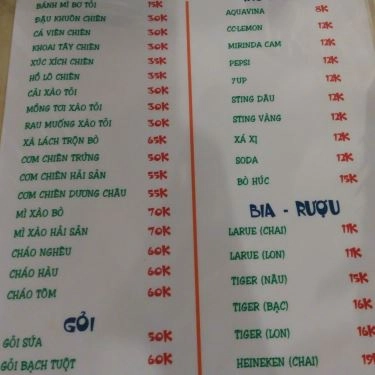 BÁNH MÌ BƠ TỎI 15K
ĐẬU KHUÔN CHIÊN 30K
CÁ VIÊN CHIÊN 30K
KHOAI TÂY CHIÊN 30K
XÚC XÍCH CHIÊN 35K
HỒ LÔ CHIÊN 35K
CẢI XÀO TỎI 30K
MỒNG TƠI XÀO TỎI 30K
RAU MUỐNG XÀO TỎI 30K
XÀ LÁCH TRỘN BÒ 65K
CƠM CHIÊN TRỨNG 50K
CƠM CHIÊN HẢI SẢN 55K
CƠM CHIÊN DƯƠNG CHÂU 55K
MÌ XÀO BÒ 70K
MÌ XÀO HẢI SẢN 70K
CHÁO NGHÊU 60K
CHÁO HÀU 60K
CHÁO TÔM 60K
GỎI
GỎI SỨA 50K
GỎI BẠCH TUỘT 60K
AQUAVINA 8K
CC-LEMON 12K
MIRINDA CAM 12K
PEPSI 12K
7UP 12K
STING DÂU 12K
STING VÀNG 12K
XÁ XỊ 12K
SODA 12K
BÒ HÚC 15K
BIA - RƯỢU
LARUE (CHAI) 11K
LARUE (LON) 11K
TIGER (NÂU) 15K
TIGER (BẠC) 16K
TIGER (LON) 16K
HEINEKEN (CHAI)